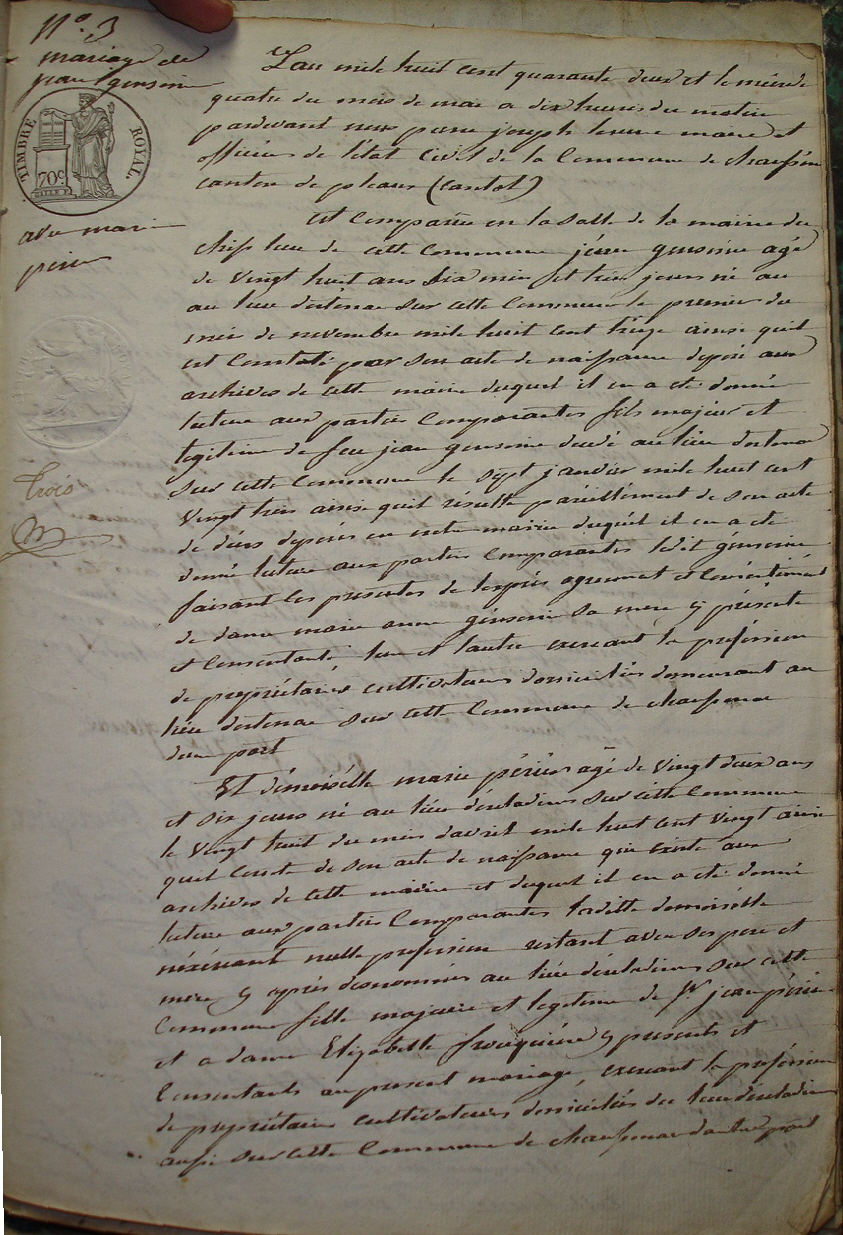 N°. 3
mariage de
jean gensoine
TIMBRE ROYAL.
70c
avec marie
périer
trois
L'an mile huit cent quarante deux et le
quatre du mois de mai a dix heures du matin
pardevant nous pierre joseph maire et
officier de létat Civil de la Commune de
canton de pleaux (cantal)
Est Comparu en la salle de la mairie du
chef lieu de cette Commune jean gensoine agé
de vingt huit ans six mois et trois jours né au
au lieu sur cette Commune le premier du
mois de novembre mile huit cent treize ainsi quil
est Constaté par son acte de naissance déposé aux
archives de cette mairie duquel il en a été donné
lecture aux parties Comparantes fils majeur et
legitime de feu jean gensoine décédé au lieu
sur cette Commune le sept janvier mile huit cent
vingt trois ainsi quil résulte pareillement de son acte
de décès déposés en notre mairie duquel il en a été
donné lecture aux parties Comparantes ledit gensoine
faisant les presentes de lexprès agrement et Consentement
de dame marie anne gensoine sa mere y présente
et Consentante lun et lautre exercant la profession
de propriétaires cultivateurs domiciliés demeurant au
lieu sur cette Commune de
dune part
Et démoiselle marie périer agé de vingt deux ans
et six jours né au lieu sur cette Commune
le vingt huit du mois davril mile huit cent vingt ainsi
quil Conste de son acte de naissance qui existe aux
archives de cette mairie et duquel il en a été donné
lecture aux parties Comparantes ladite demoiselle
néxércant nulle profession restant avec ses pere et
mere y après dénommés au lieu sur cette
Commune fille majeure et legitime de Sr. jean périer
et a dame Elizabette y presents et
Consentants au present mariage, exercant la profession
de propriétaires cultivateurs domiciliés du lieu
aussi sur cette Commune de dautre part